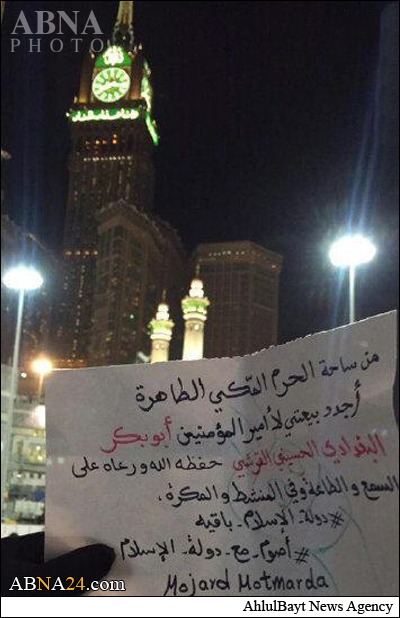 ABNA
PHOTO
من ساحة الحرم المكي الطاهرة
أجدد بيعتي لأمير المؤمنين أبو بكر
البغدادي الحسيني القرشي حفظه الله ورعاه على
السمع والطاعة في المنشط والمكره .
#دولة_الإسلام_باقيه
#أصوم_مع_دولة_الإسلام
Mojard Motmarda
ABNA24.com
AhlulBayt News Agency